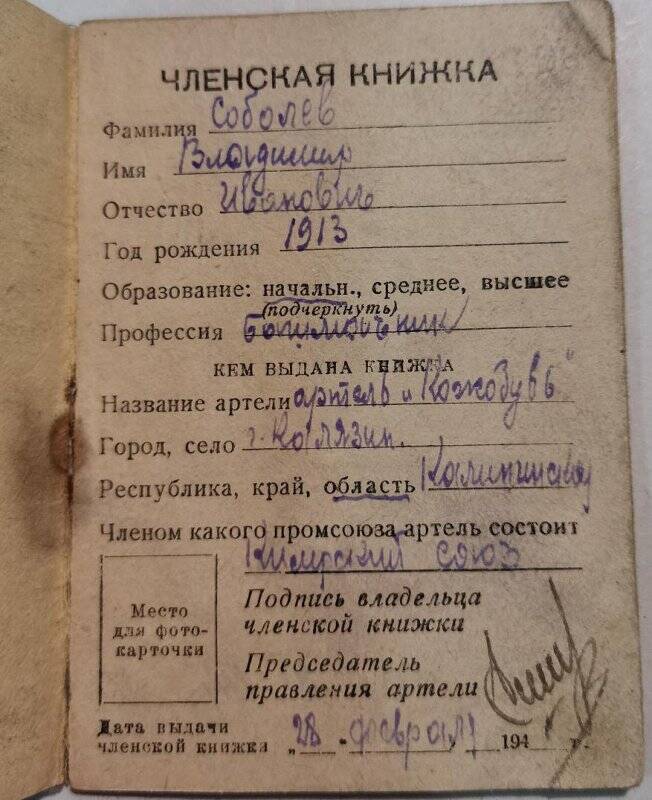 ЧЛЕНСКАЯ КНИЖКА
Фамилия Соболев
Имя Владимир
Отчество Иванович
Год рождения 1913
Образование: начальн., среднее, высшее
(подчеркнуть)
Профессия башмачник
КЕМ ВЫДАНА КНИЖКА
Название артели артель „Кожобувь"
Город, село г. Калязин.
Республика, край, область Калининской
Членом какого промсоюза артель состоит
Кимрский союз
Место
для фото-
карточки
Подпись владельца
членской книжки
Председатель
правления артели
Дата выдачи
членской книжки „28 " февраля 194 г.